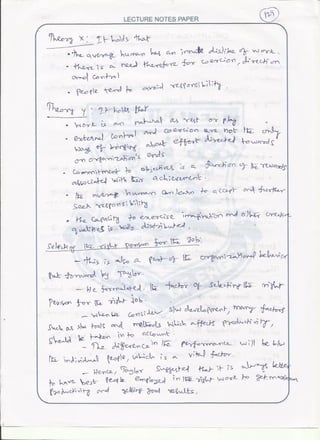 129
LECTURE NOTES PAPER
Theory X : It holds that
• The average human has an innate dislike of work.
• There is a need therefore for coercion, direction
and control
• People tend to avoid responsibility
Theory Y : It holds that
• Work is as natural as rest or play
• External control and coercion are not the only
ways of bringing about effort directed towards
an organization's ends
• Commitment to objectives is a function of the rewards
associated with their achievement.
• The average human can learn to accept and further
seek responsibility
• The capacity to exercise imagination and other creative
qualities is widely distributed.
Selecting the right person for the Job:
- This is also a part of the organizational behavior
Put forward by Taylor
- He formulated the factor of selecting the right
Person for the right job
- when we consider skill development, many factors
such as the tools and methods which affects productivity,
should be taken into account
- The difference in the performance will be b/w
the individual people, which is a vital factor.
- Hence, Taylor suggested that it is always better
to have best people employed in the right work to get maximum
Productivity and getting good results.